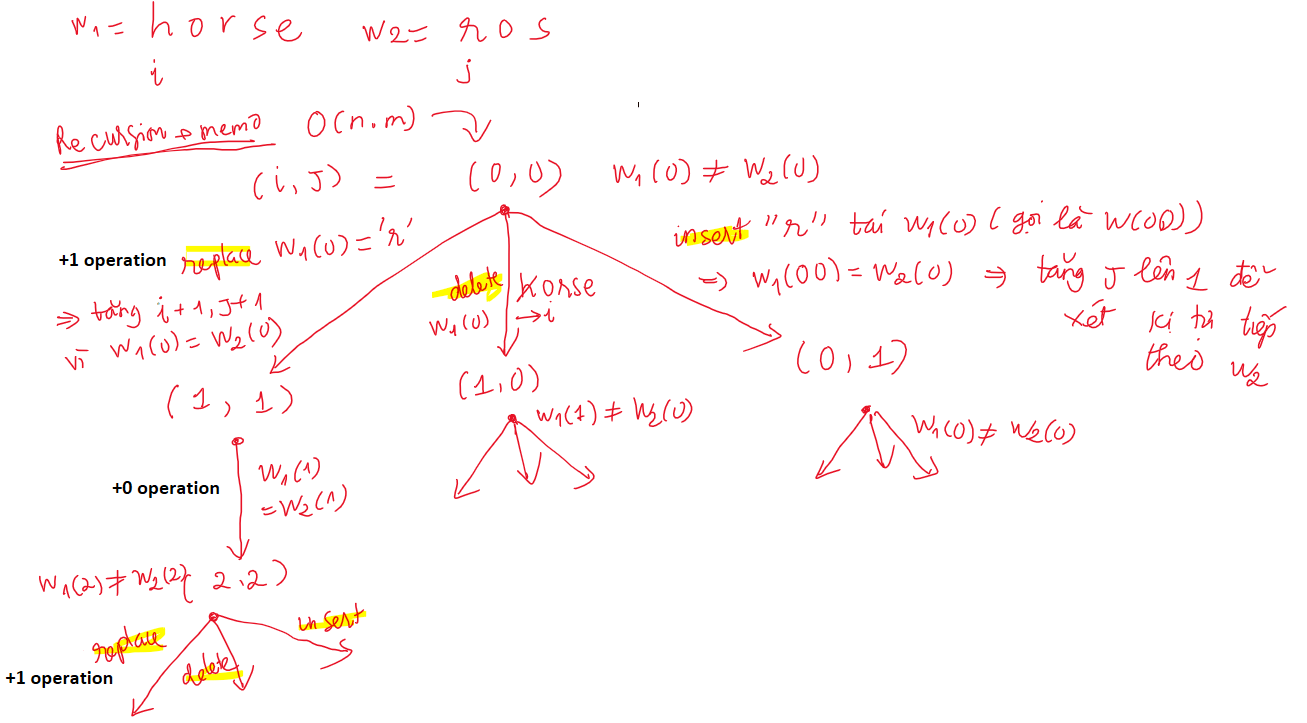 w1 = horse w2 = ros
i j
Recursion + memo O(n.m)
(i, J) = (0,0) w1(0) ≠ w2(0)
+1 operation replace w1(0) = 'r'
⇒ tăng i+1, J+1
vì w1(0) = w2(0)
delete horse
w1(0) → i
insert "r" tái w1(0) (gọi là w(00))
⇒ w1(00) = w2(0) ⇒ tăng J lên 1 để
xét kí tử tiếp
theo w2
(1, 1) (1,0) (0, 1)
w1(1) ≠ w2(0)
w1(0) ≠ w2(0)
+0 operation w1(1)
= w2(1)
w1(2) ≠ w2(2) (2.2)
replace delete insert
+1 operation